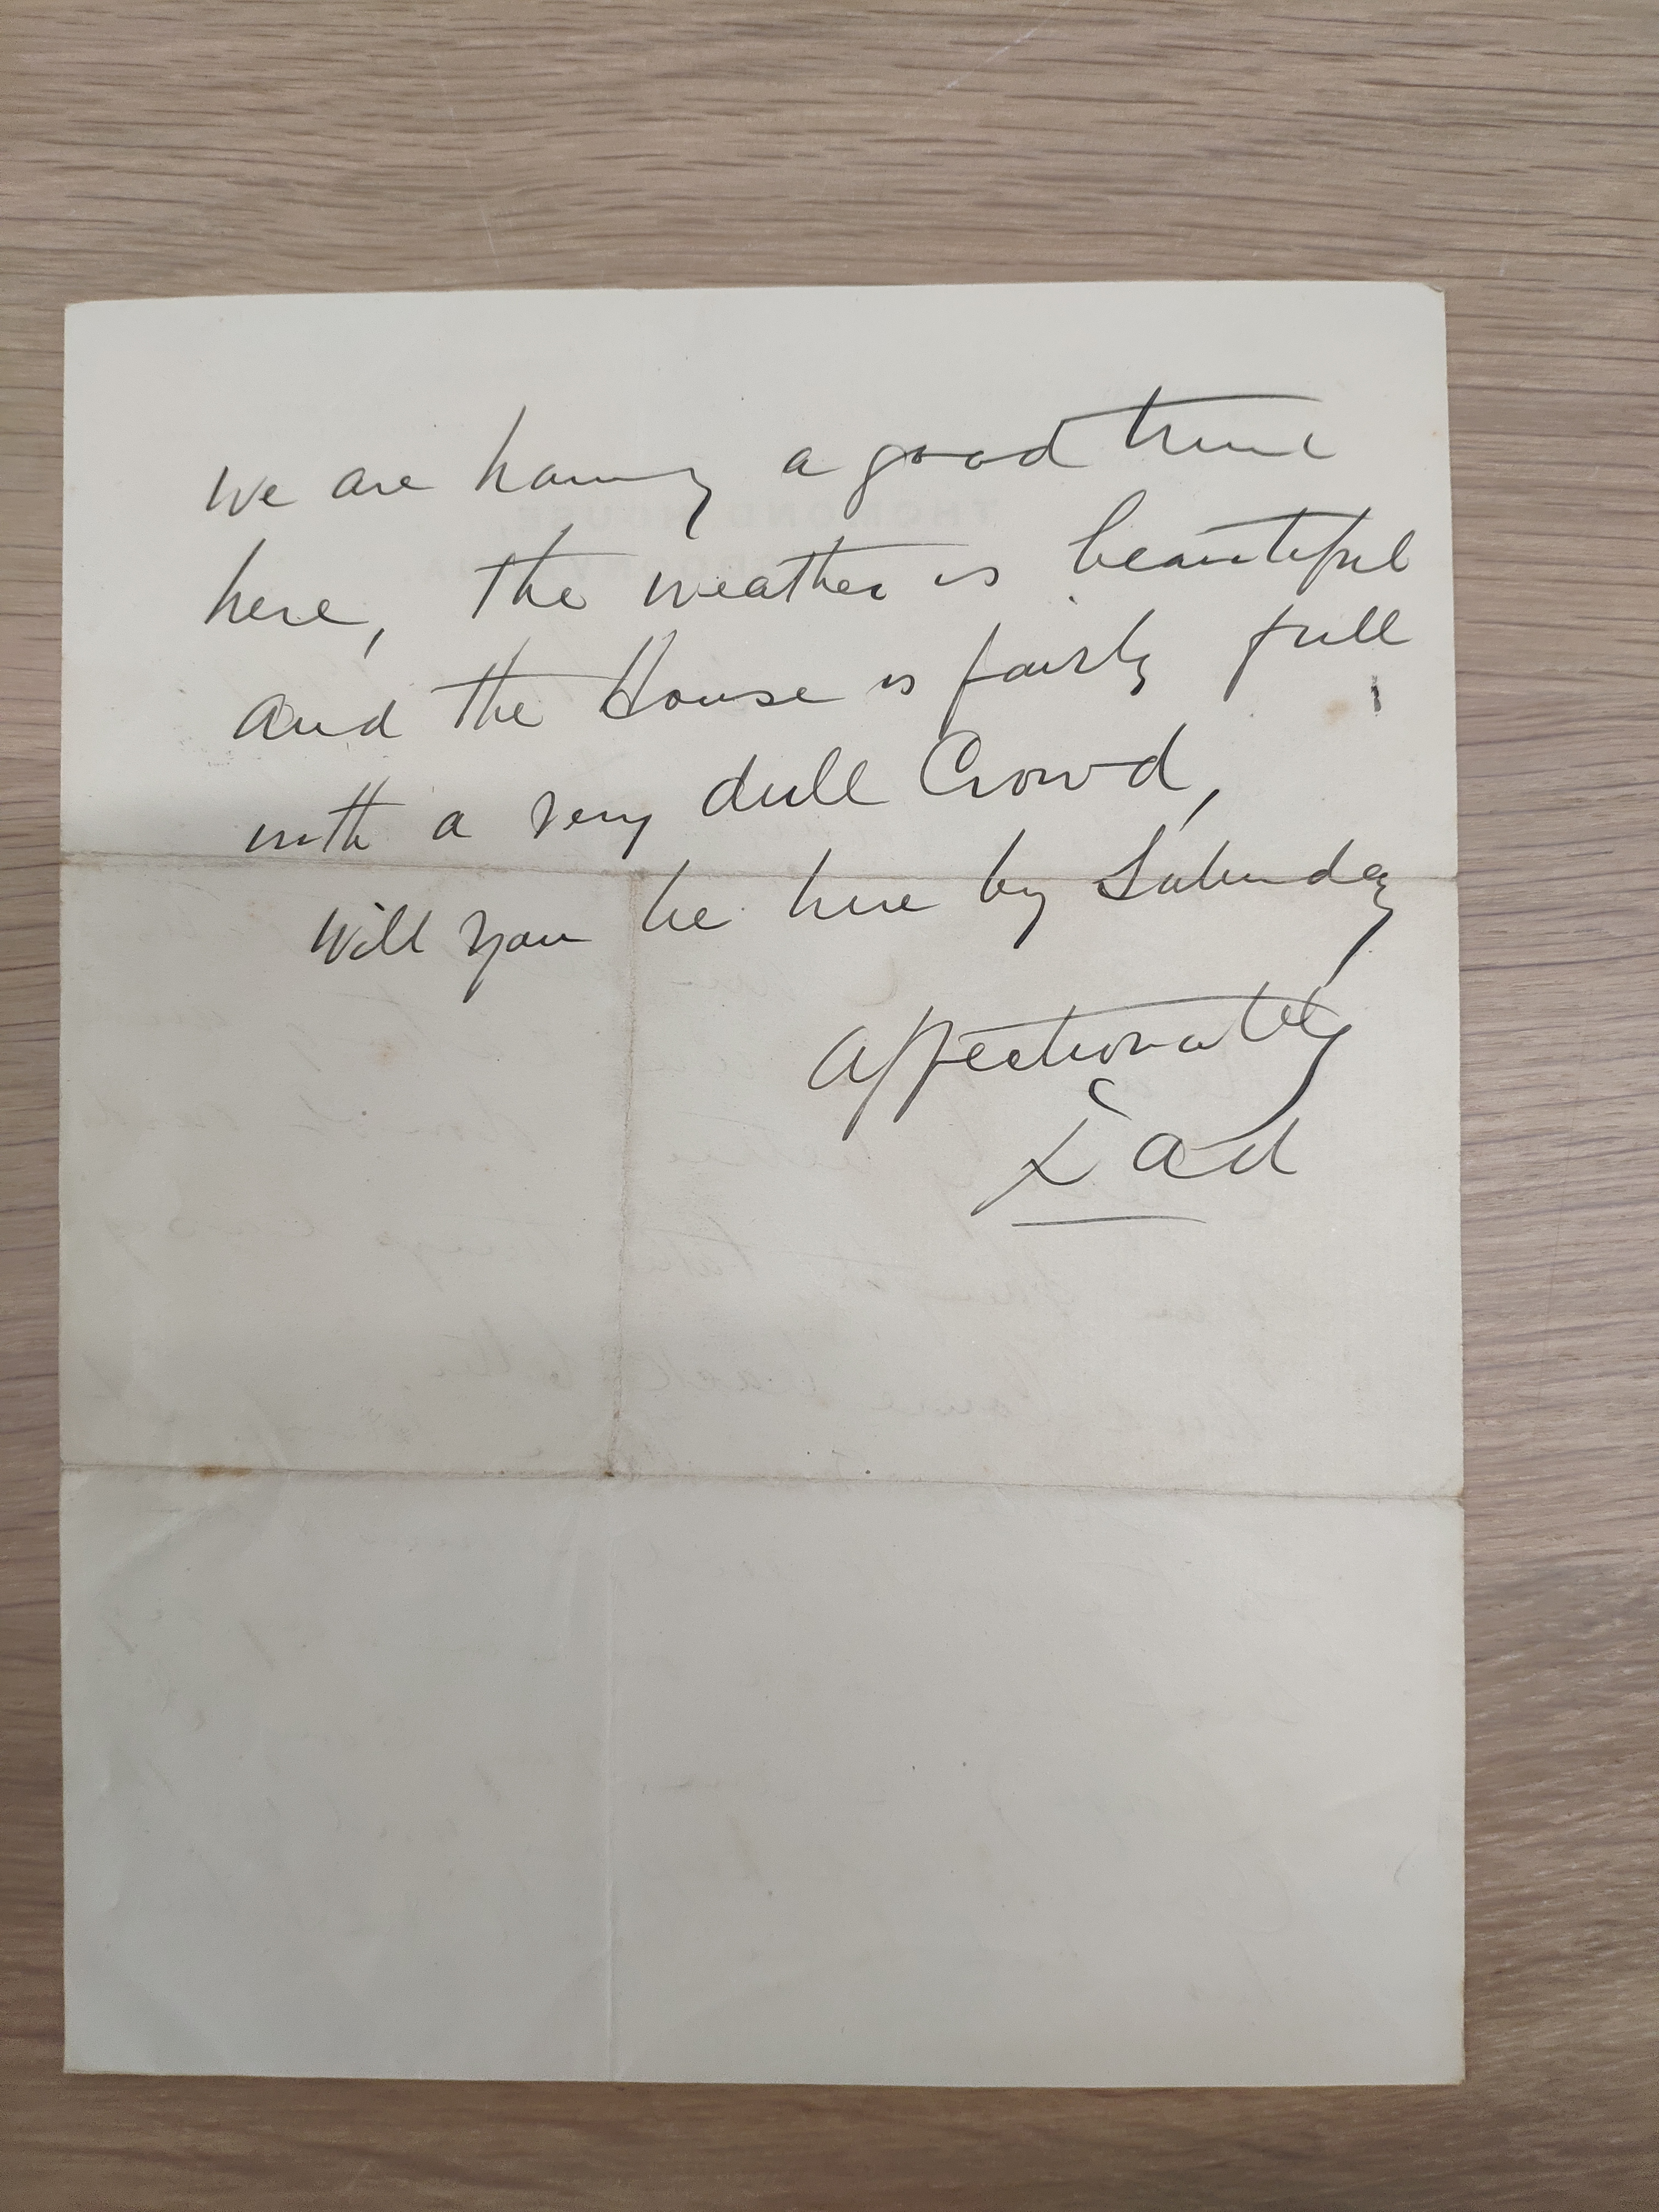 We are having a good time
here, the weather is beautiful
and the House is fairly full
with a very dull Crowd,
Will you be here by Saturday
Affectionately
Dad